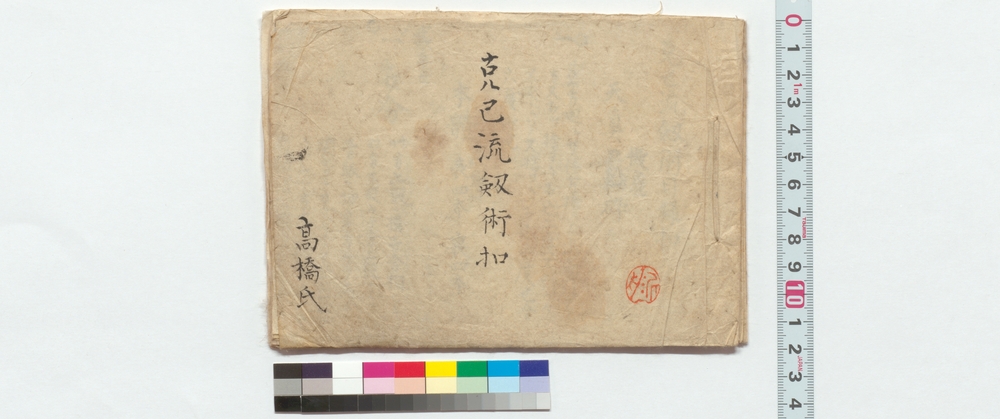 克己流剱術扣
高橋氏
0
1
2
1m
3
4
5
6
7
8
9
10
1
2
JAPAN
3
4